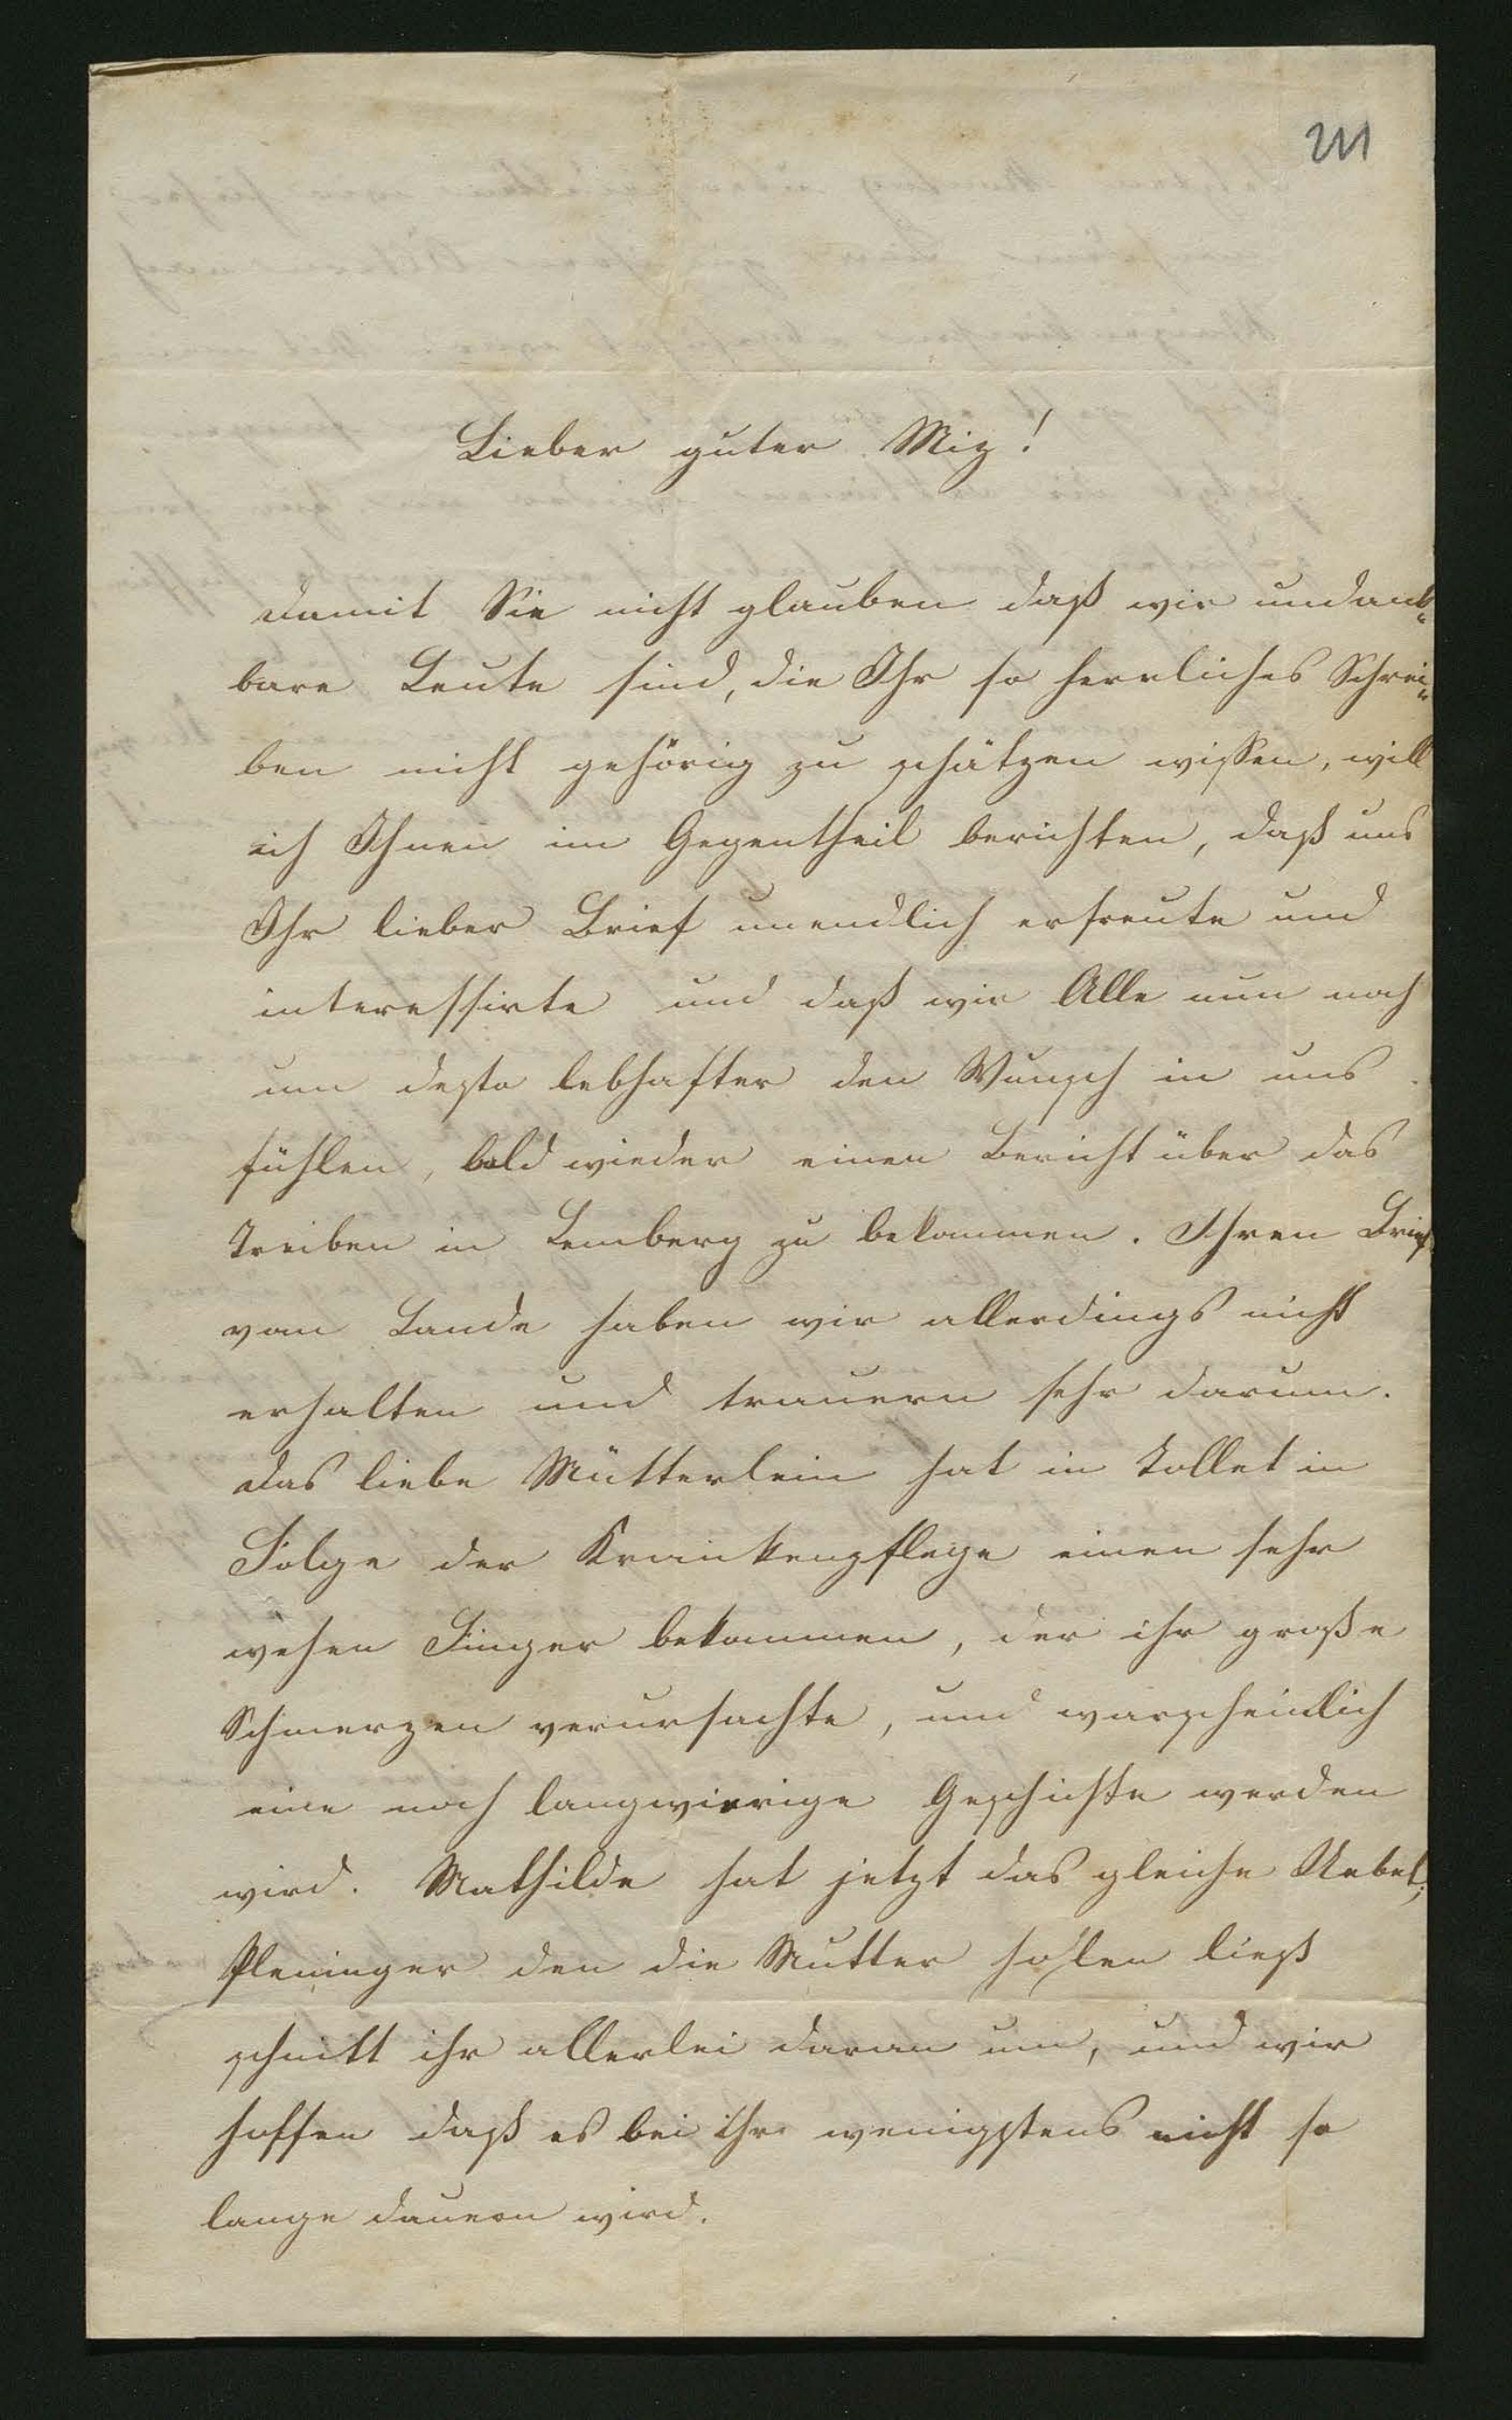 211
Lieber guter Miz!
Damit Sie nicht glauben daß wir undank=
bare Leute sind, die Ihr so herrliches Schrei=
ben nicht gehörig zu schätzen wissen, will
ich Ihnen im Gegentheil berichten, daß uns
Ihr lieber Brief unendlich erfreute und
interessirte und daß wir Alle nun noch
um desto lebhafter den Wunsch in uns
fühlen, bald wieder einen Bericht über das
Treiben in Lemberg zu bekommen. Ihren Brief
vom Lande haben wir allerdings nicht
erhalten und trauern sehr darum.
Das liebe Mütterlein hat in Tollet in
Folge der Krankenpflege einen sehr
wehen Finger bekommen, der ihr große
Schmerzen verursachte, und warscheinlich
eine noch langwierige Geschichte werden
wird. Mathilde hat jetzt das gleiche Uebel;
Pleninger den die Mutter holen ließ
schnitt ihr allerlei daran um, und wir
hoffen daß es bei ihr wenigstens nicht so
lange dauern wird.